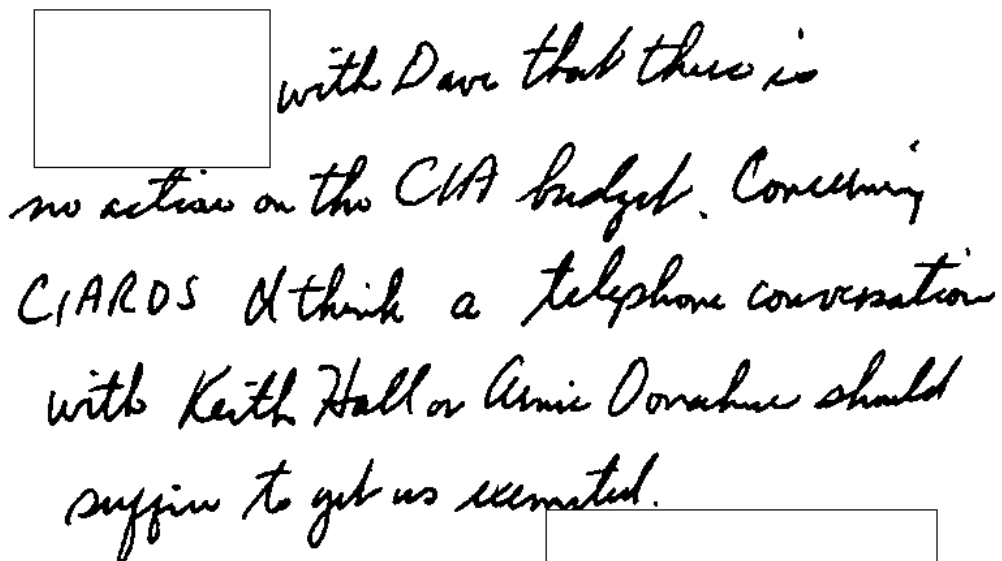 with Dave that there is
no action on the CIA budget. Concerning
CIARDS I think a telephone conversation
with Keith Hall or Arnie Donahue should
suffice to get us exempted.